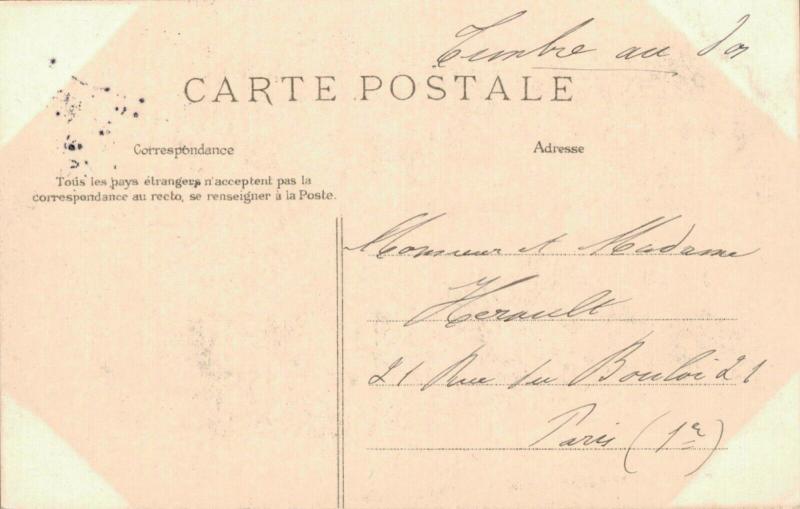 Timbre au dos
CARTE POSTALE
Correspondance
Adresse
Tous les pays étrangers n'acceptent pas la
correspondance au recto, se renseigner à la Poste.
Monsieur et Madame
Herault
21 Rue du Bouloi 21
Paris (1er)